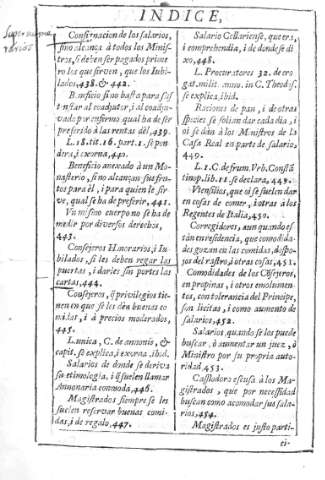 INDICE,
Consignacion de los salarios,
sino alcança à todos los Minis-
tros, si deben ser pagados prime-
ro los que sirven, que los Iubi-
lados, 438. & 442.
Beneficio si no basta para sus-
tentar al coadjutor, i al coadju-
vado por enfermo qual ha de ser
preferido à las rentas dèl, 439.
L. 18. tit. 16. part. 1. se pon-
dera, i exorna, 440.
Beneficio anexado à un Mo-
nasterio, si no alcançan sus fru-
tos para èl, i para quien le sir-
ve, qual se ha de preferir, 441.
Vn mismo cuerpo no se ha de
medir por diversos derechos,
443.
Consejeros Honorarios, i Iu-
bilados, si les deben regar las
puertas, i darles sin portes las
cartas, 444.
Consejeros, què privilegios tie-
nen en que se les dèn buenas co-
midas, i à precios moderados,
445.
L. unica, C. de annonis, &
capit. se explica, i exorna. ibid.
Salarios de donde se deriva
su etimologia, i què suelen llamar
Annonaria commoda, 446.
Magistrados siempre se les
suelen reservar buenas comi-
das, i de regalo, 447.
Salario Cellariense, que era,
i comprehendia, i de donde se di-
xo, 448.
L. Procuratores 32. de ero-
gat. milit. annn. in C. Theodos.
se explica, ibid.
Raciones de pan, i de otras
especies se solian dar cada dia, i
oi se dàn à los Ministros de la
Casa Real en parte de salario,
449.
L. 1. C. de frum. Vrb. Constã
tinop. lib. 11. se declara, 449.
Viensilios, que oi se suelen dar
en casas de comer, i otras à los
Regentes de Italia, 450.
Corregidores, aun quando es-
tàn en residencia, que comodida-
des gozan en las comidas, despo-
jos del rastro, i otras cosas, 451.
Comodidades de los Cõsejeros,
en propinas, i otros emolumen-
tos, con tolerancia del Principe,
son licitas, i como aumento de
salarios, 452.
Salarios, quando se los puede
buscar, ò aumentar un juez, ò
Ministro por su propria auto-
ridad, 453.
Cassiodoro escusa à los Ma-
gistrados, que por necessidad
buscan como acomodar sus sala-
rios, 454.
Magistrados es justo parti-
ci-